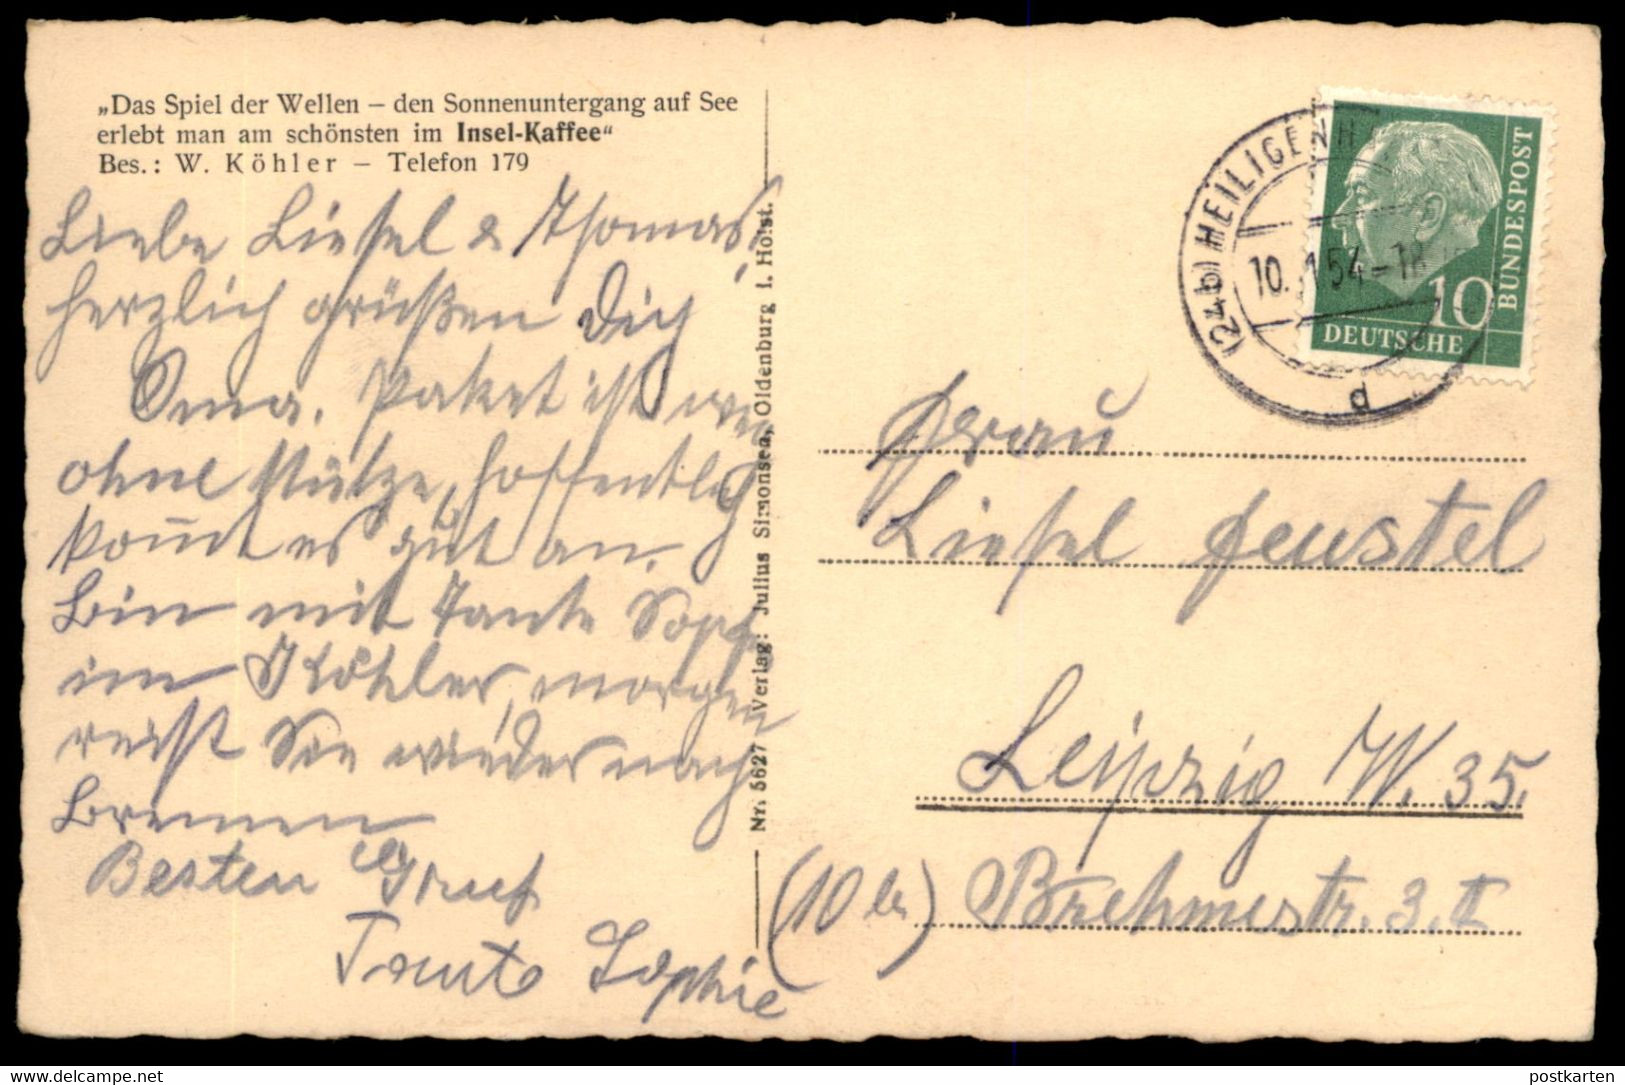 „Das Spiel der Wellen – den Sonnenuntergang auf See
erlebt man am schönsten im Insel-Kaffee“
Bes.: W. Köhler – Telefon 179
Liebe Liesel & Thomas!
herzlich grüßen Dich
Oma. Paket ist weg
ohne Mütze, hoffentlich
kom̄t es gut an.
Bin mit Tante Soph
im Köhler, morgen
reist Sie wieder nach
Bremen
Besten Gruß
Tante Sophie
Nr. 5627 Verlag: Julius Simonsen, Oldenburg i. Holst.
(24b) HEILIGENH
10. 54-18
d
10
DEUTSCHE
BUNDESPOST
Frau
Liesel Feustel
Leipzig W. 35.
(10b) Brehmestr. 3. II
www.delcampe.net
postkarten